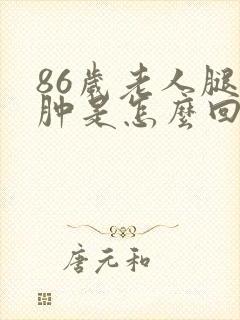 86歲老人腿
肿是怎麼回
唐元和